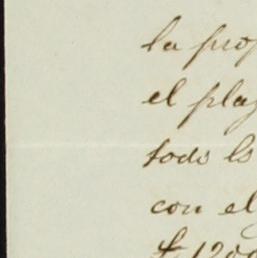 la prop
el plaz
todo lo
con el
$1200